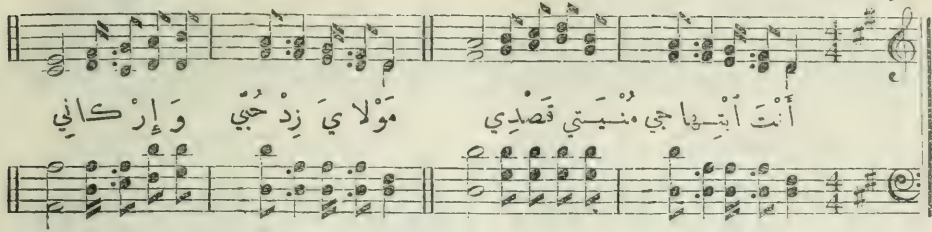 أَنْتَ ٱبْتِهاجي مُنْيَتي قَصْدِي مَوْلايَ زِدْ حُبِّي وَإِرْكاني